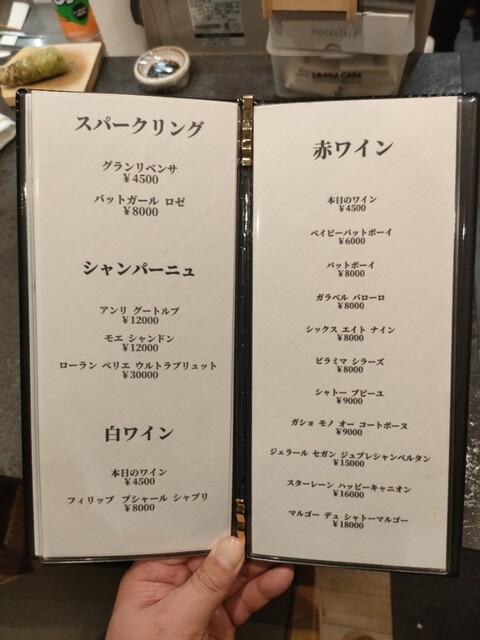 スパークリング
グランリベンサ
￥4500
バットガール ロゼ
￥8000
シャンパーニュ
アンリ グートルブ
￥12000
モエ シャンドン
￥12000
ローラン ペリエ ウルトラブリュット
￥30000
白ワイン
本日のワイン
￥4500
フィリップ ブシャール シャブリ
￥8000
赤ワイン
本日のワイン
￥4500
ベイビーバットボーイ
￥6000
バットボーイ
￥8000
ガラベル バローロ
￥8000
シックス エイト ナイン
￥8000
ピラミマ シラーズ
￥8000
シャトー プピーユ
￥9000
ガショ モノ オー コートボーヌ
￥9000
ジェラール セガン ジュブレシャンベルタン
￥15000
スターレーン ハッピーキャニオン
￥16000
マルゴー デュ シャトーマルゴー
￥18000